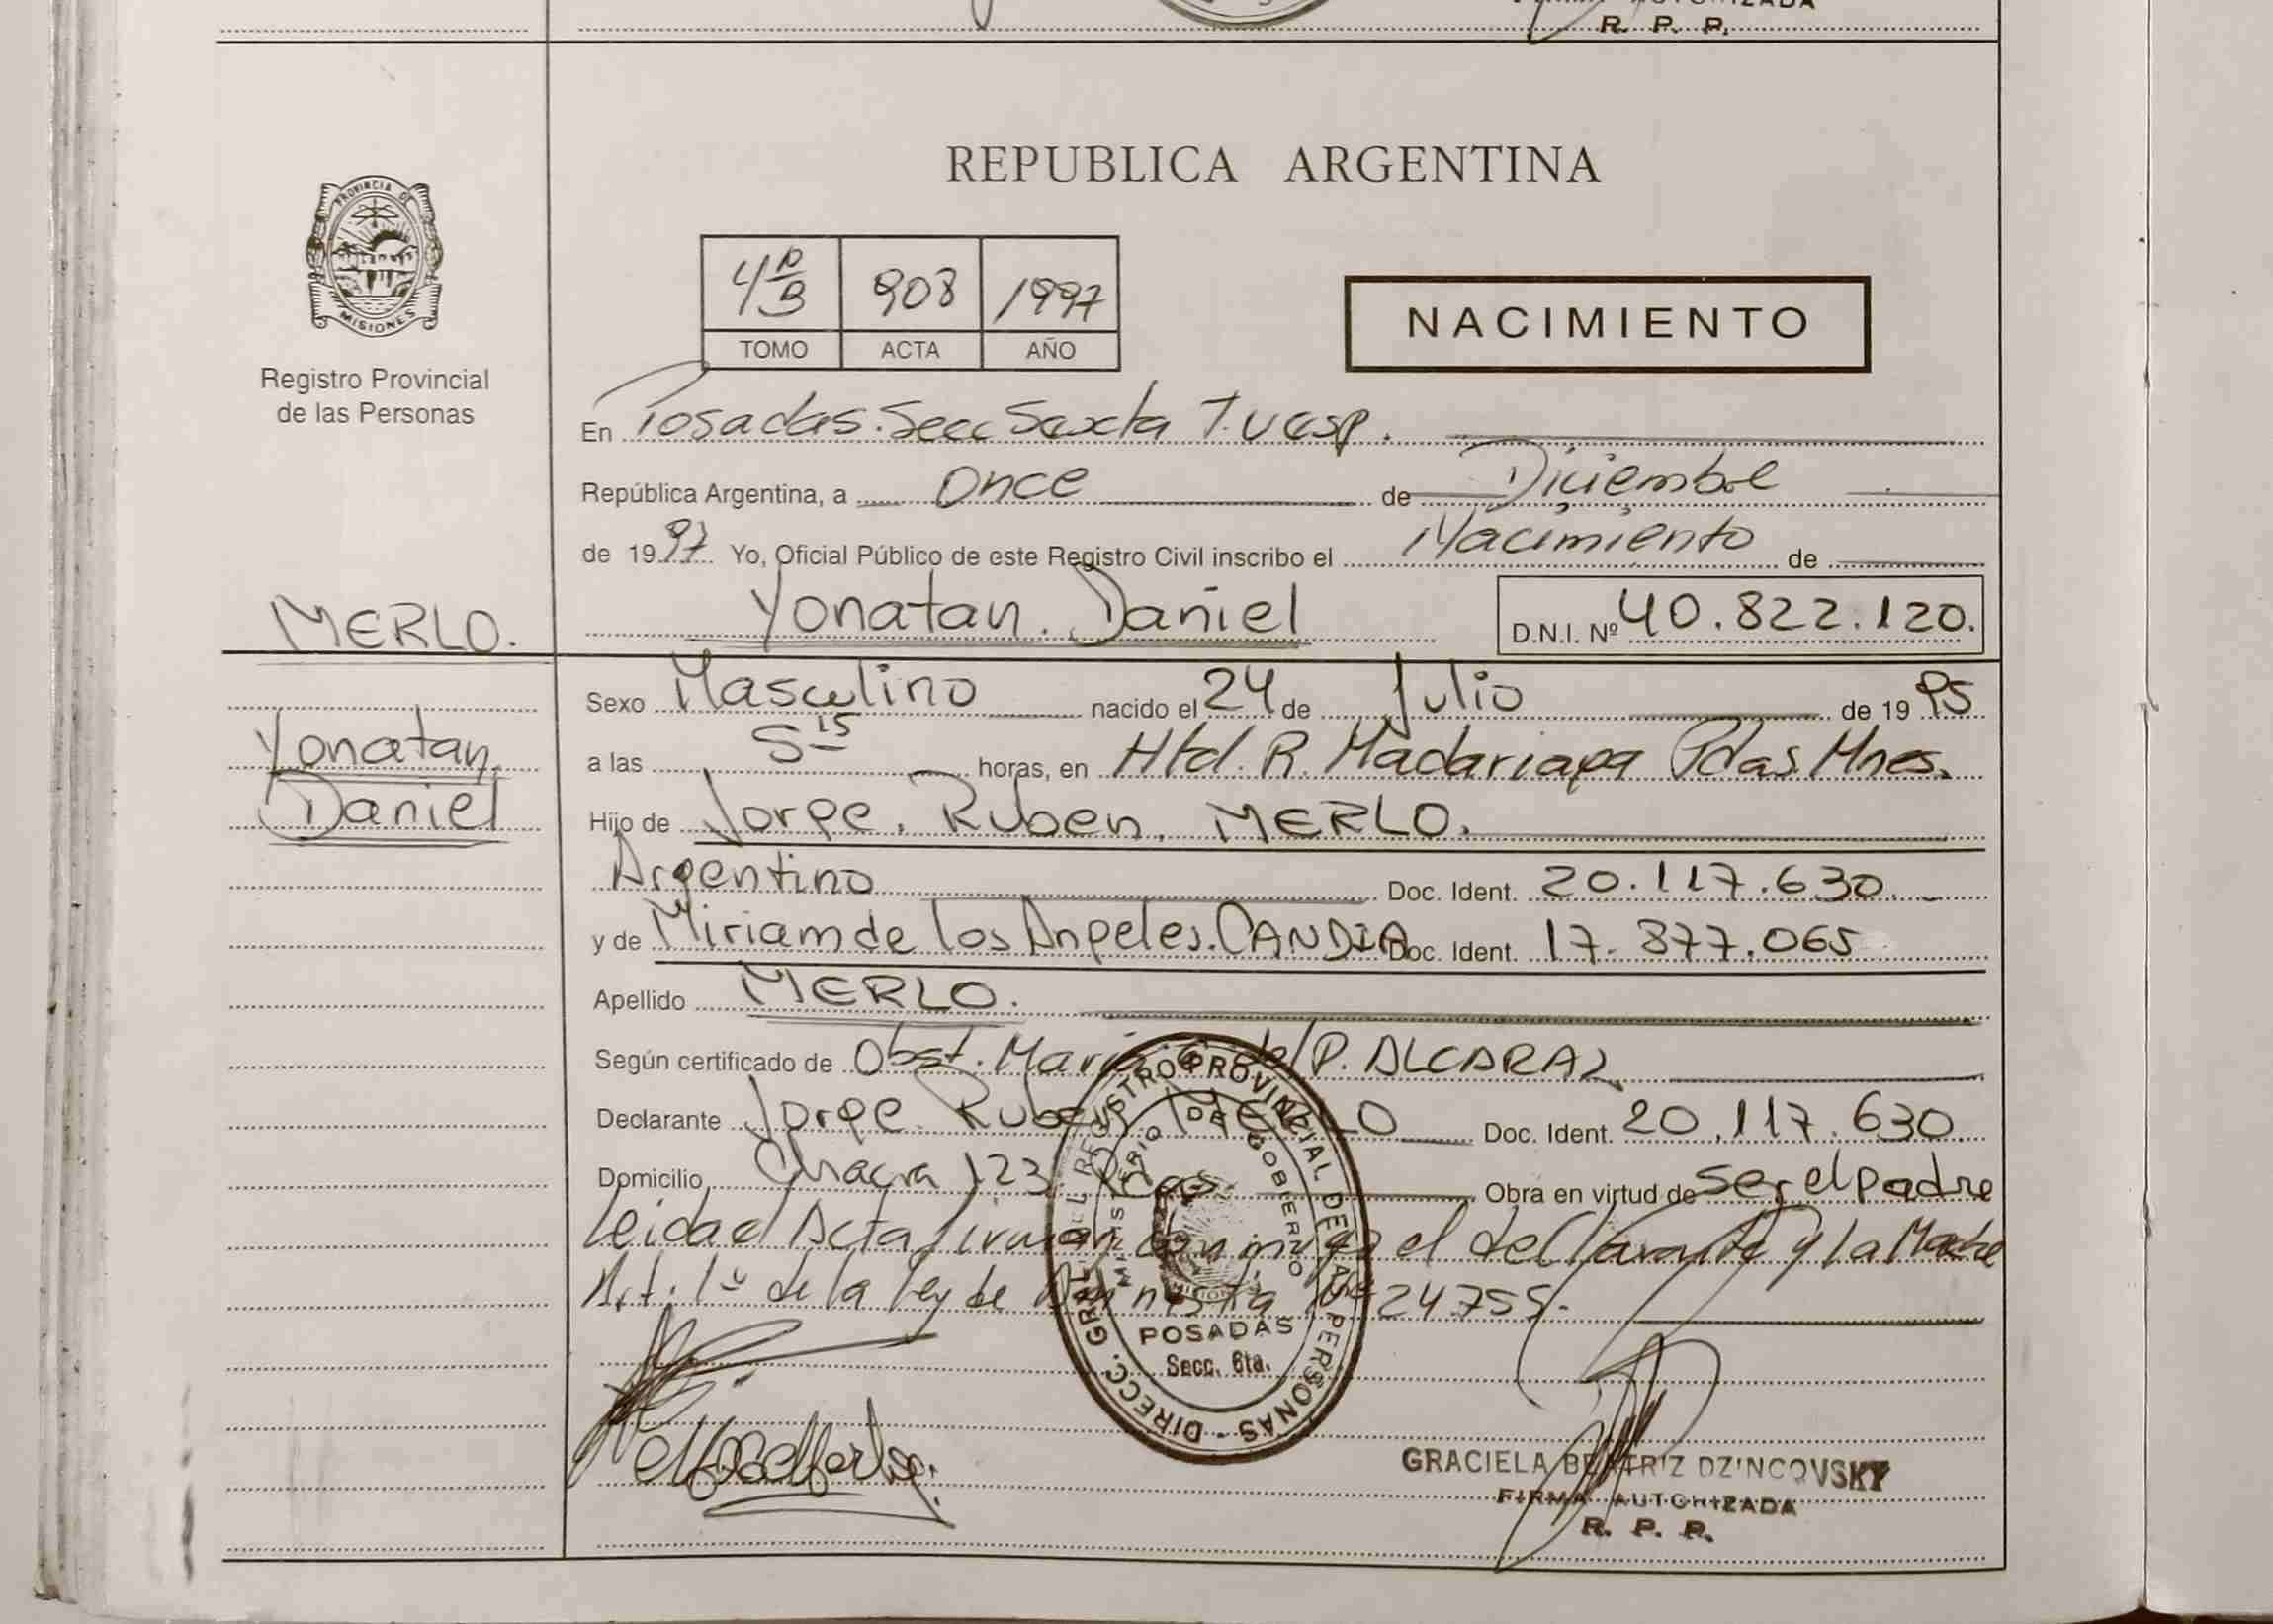 AUTORIZADA
R. P. R.
REPUBLICA ARGENTINA
PROVINCIA DE
MISIONES
Registro Provincial
de las Personas
908 1997
TOMO ACTA AÑO
NACIMIENTO
En Posadas. Secc Sexta T. Vesp.
República Argentina, a Once de Diciembre
de 1997 Yo, Oficial Público de este Registro Civil inscribo el Nacimiento de
Yonatan. Daniel D.N.I. Nº 40.822.120.
MERLO.
Yonatan
Daniel
Sexo Masculino nacido el 24 de Julio de 1995
a las 5 15 horas, en R. Madariaga Pdas. Mnes.
Hijo de Jorge. Ruben. MERLO.
Argentino Doc. Ident. 20.117.630
y de Miriam de los Angeles. CANDIA Doc. Ident. 17.877.065
Apellido MERLO.
Según certificado de Obst. María del P. ALCARAZ
Declarante Jorge Ruben MERLO Doc. Ident. 20.117.630
Domicilio Chacra 123 Pdas. Obra en virtud de ser el padre
Leida el Acta firman conmigo el declarante y la Madre
Art. 1º de la ley de Amnistia Nº 24.755.
DIRECC. GRAL. DEL REGISTRO PROVINCIAL DE LAS PERSONAS
MINISTERIO DE GOBIERNO
POSADAS
Secc. 6ta.
GRACIELA BEATRIZ DZINCOVSKY
FIRMA AUTORIZADA
R. P. R.